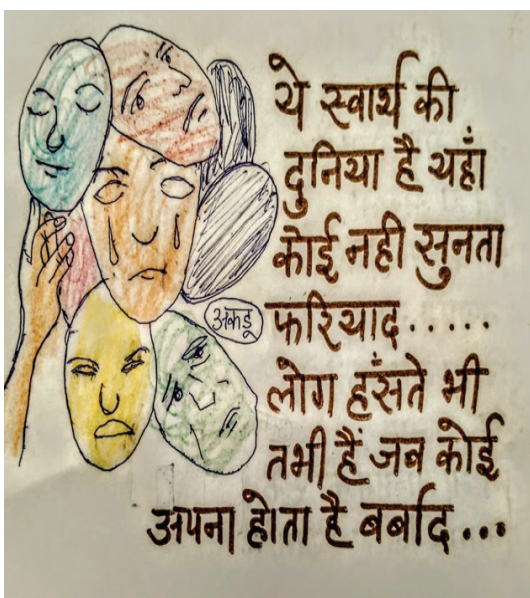 ये स्वार्थ की
दुनिया है यहाँ
कोई नही सुनता
अंकडू
फरियाद.....
लोग हँसते भी
तभी हैं जब कोई
अपना होता है बर्बाद...